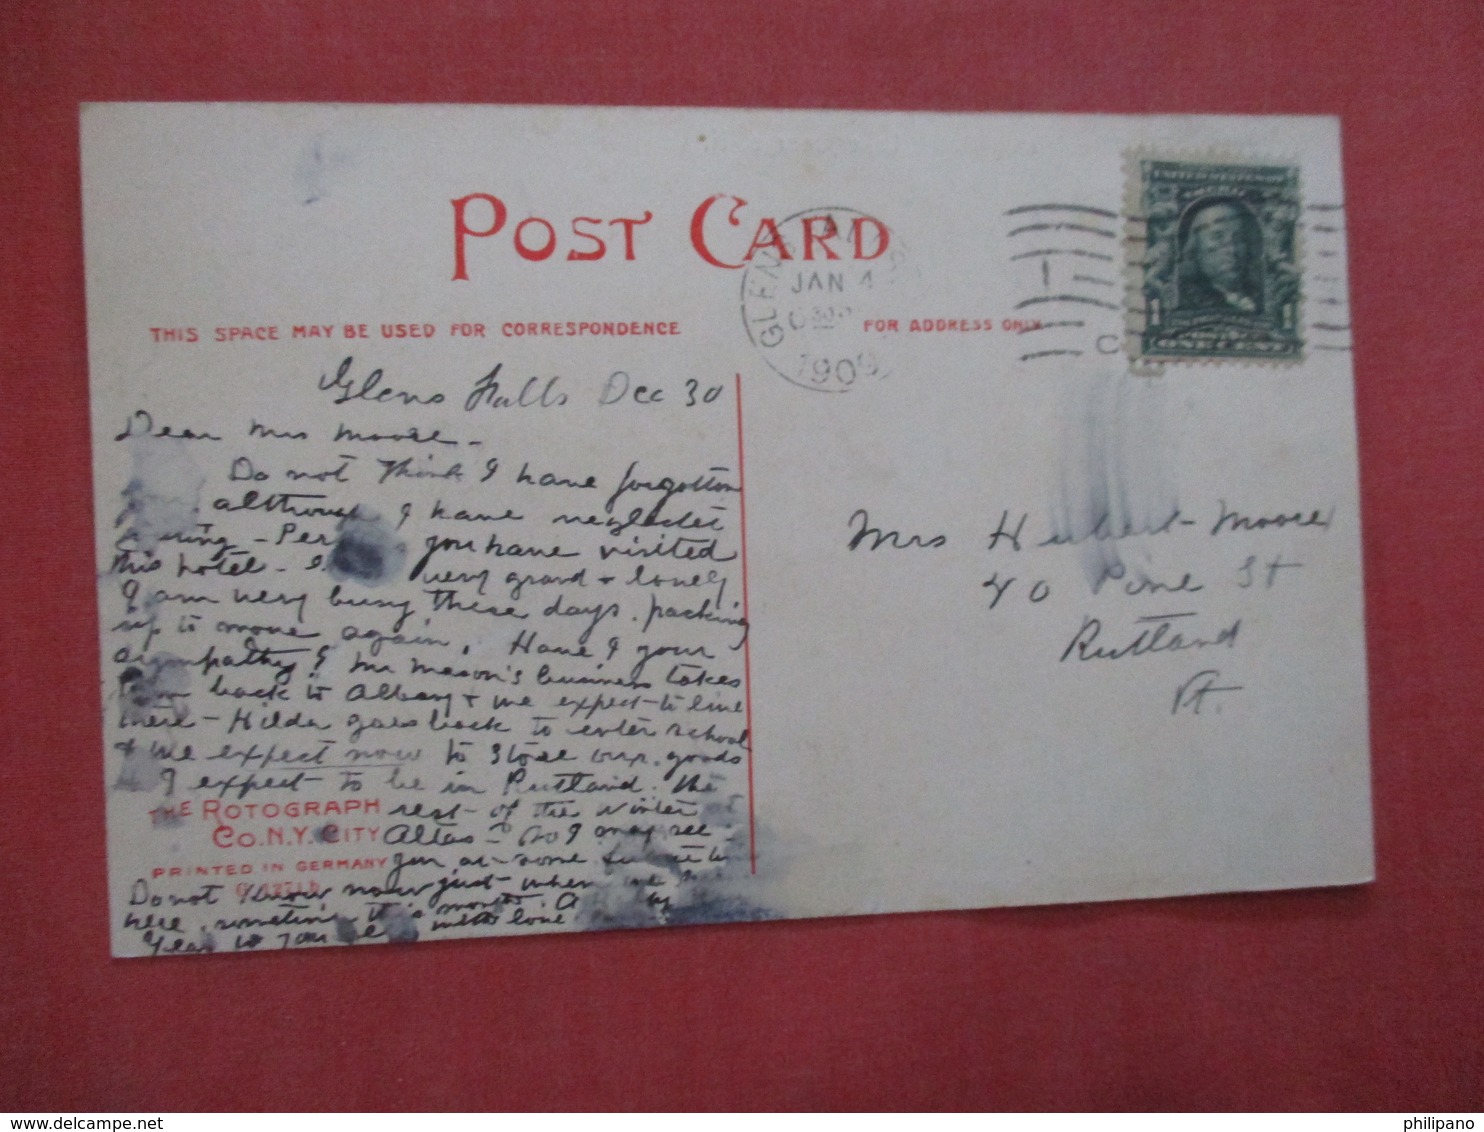 POST CARD
THIS SPACE MAY BE USED FOR CORRESPONDENCE
FOR ADDRESS ONLY
GLENS FALLS
JAN 4
1909
ONE CENT
Glens Falls Dec 30
Dear Mrs Moore -
Do not think I have forgotten
although I have neglected
- you have visited
this hotel - very grand & lonely
I am very busy these days. packing
up to move again. Have I your
sympathy? Mr Mason's business takes
him back to Albany & we expect to live
there - Hilda goes back to enter school
& we expect now to store our goods
& I expect to be in Rutland. the
rest of the winter
so I may see
you at some
Do not know now just when we
here, sometime this month. A
Year to you with love
THE ROTOGRAPH
CO. N.Y. CITY
PRINTED IN GERMANY
Mrs Hubert Moore
40 Pine St
Rutland
Vt.
delcampe.net
philipano